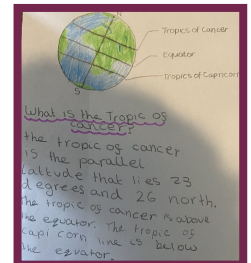 N
Tropics of Cancer
Equator
Tropics of Capricorn
S
What is the Tropic of
cancer?
the tropic of cancer
is the parallel
latitude that lies 23
degrees and 26 north.
the tropic of cancer is above
the equator. The tropic of
capi corn line is below
the equator.